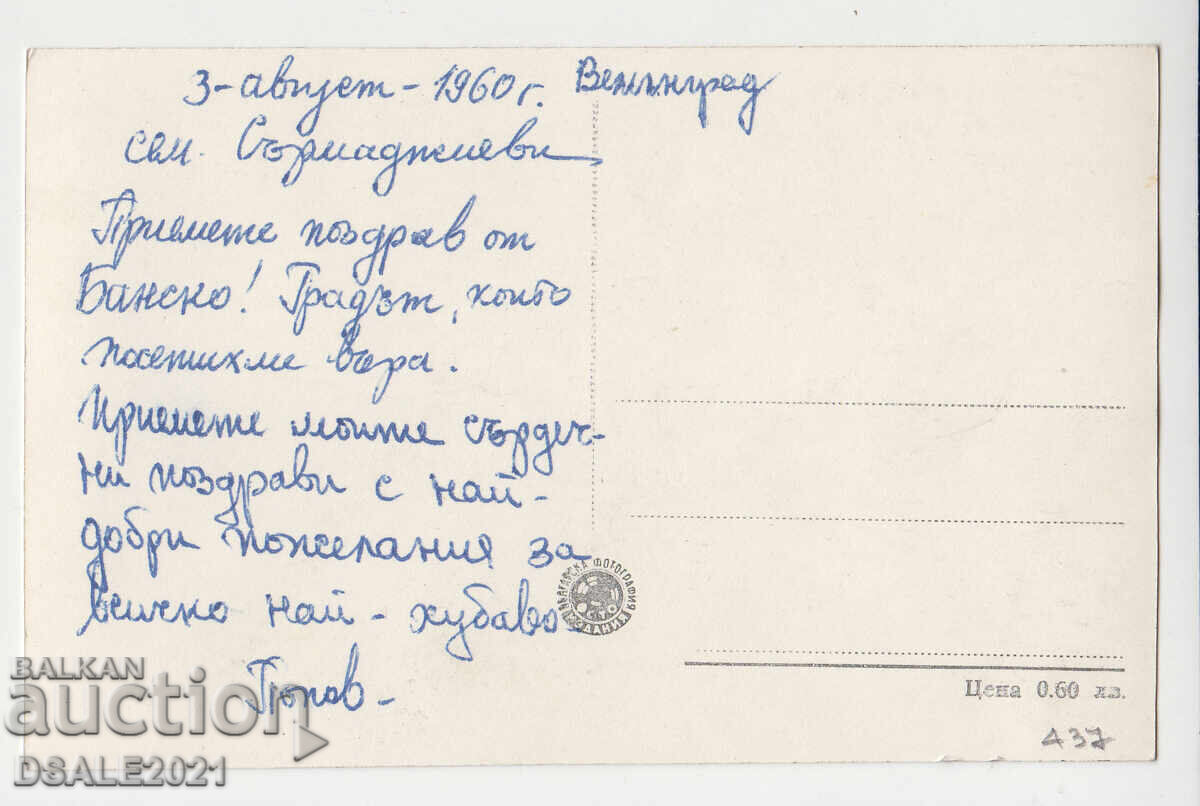 3-август-1960г. Велинград
сем. Сърмаджиеви
Приемете поздрав от
Банско! Градът, който
посетихме вчера.
Приемете моите сърдеч-
ни поздрави с най-
добри пожелания за
всичко най-хубаво
Попов-
БЪЛГАРСКА ФОТОГРАФИЯ
ИЗДАНИЯ
Цена 0.60 лв.
437
BALKAN
auction
DSALE2021